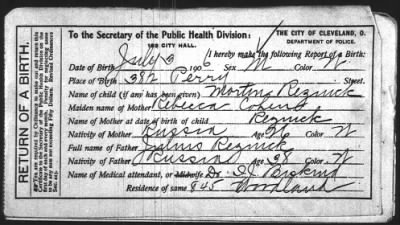 RETURN OF A BIRTH.
To the Secretary of the Public Health Division:
103 CITY HALL.
THE CITY OF CLEVELAND, O.
DEPARTMENT OF POLICE.
I hereby make the following Report of a Birth:
Date of Birth July 3 1906 Sex M Color W
Place of Birth 382 Perry Street.
Name of child (if any has been given) Morting Reznick
Maiden name of Mother Ribecca Cohens
Name of Mother at date of birth of child Reznick
Nativity of Mother Russia Age 26 Color W
Full name of Father Julius Reznick
Nativity of Father Russia Age 38 Color W
Name of Medical attendant, or Midwife Dr. I J Biskind
Residence of same 845 Woodland